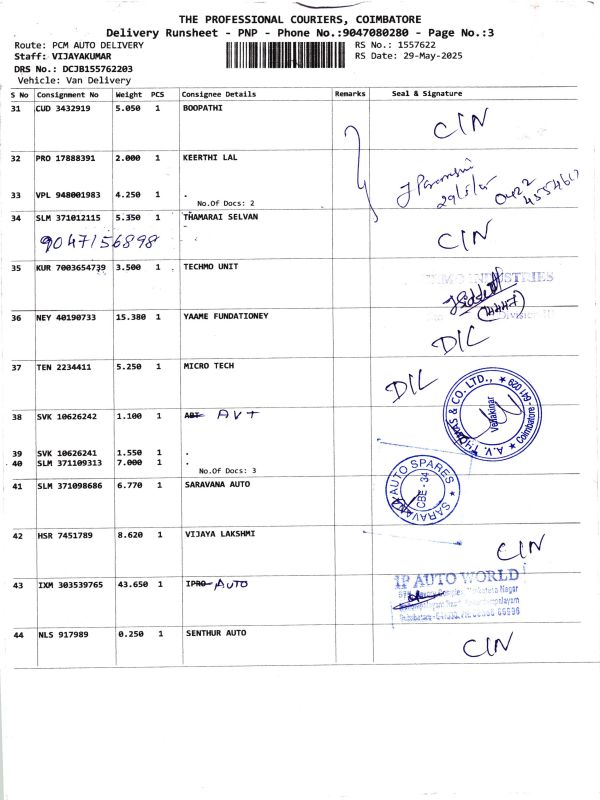 THE PROFESSIONAL COURIERS, COIMBATORE
Delivery Runsheet - PNP - Phone No.:9047080280 - Page No.:3
Route: PCM AUTO DELIVERY
RS No.: 1557622
Staff: VIJAYAKUMAR
RS Date: 29-May-2025
DRS No.: DCJB155762203
Vehicle: Van Delivery
S No Consignment No Weight PCS Consignee Details Remarks Seal & Signature
31 CUD 3432919 5.050 1 BOOPATHI
CIN
32 PRO 17888391 2.000 1 KEERTHI LAL
33 VPL 948001983 4.250 1 .
29/5/25
0422
No.Of Docs: 2
34 SLM 371012115 5.350 1 THAMARAI SELVAN
9047156898
CIN
35 KUR 7003654739 3.500 1 TECHMO UNIT
INDUSTRIES
36 NEY 40190733 15.380 1 YAAME FUNDATIONEY
DIL
37 TEN 2234411 5.250 1 MICRO TECH
DIL
A.V. THOMAS & CO. LTD.,
Coimbatore - 641 029
Vellakinar
38 SVK 10626242 1.100 1 ABT AVT
39 SVK 10626241 1.550 1 .
40 SLM 371109313 7.000 1 .
No.Of Docs: 3
41 SLM 371098686 6.770 1 SARAVANA AUTO
SARAVANA AUTO SPARES
CBE - 34
42 HSR 7451789 8.620 1 VIJAYA LAKSHMI
CIN
43 IXM 303539765 43.650 1 IPRO AUTO
IP AUTO WORLD
Complex, Venkateta Nagar
44 NLS 917989 0.250 1 SENTHUR AUTO
CIN